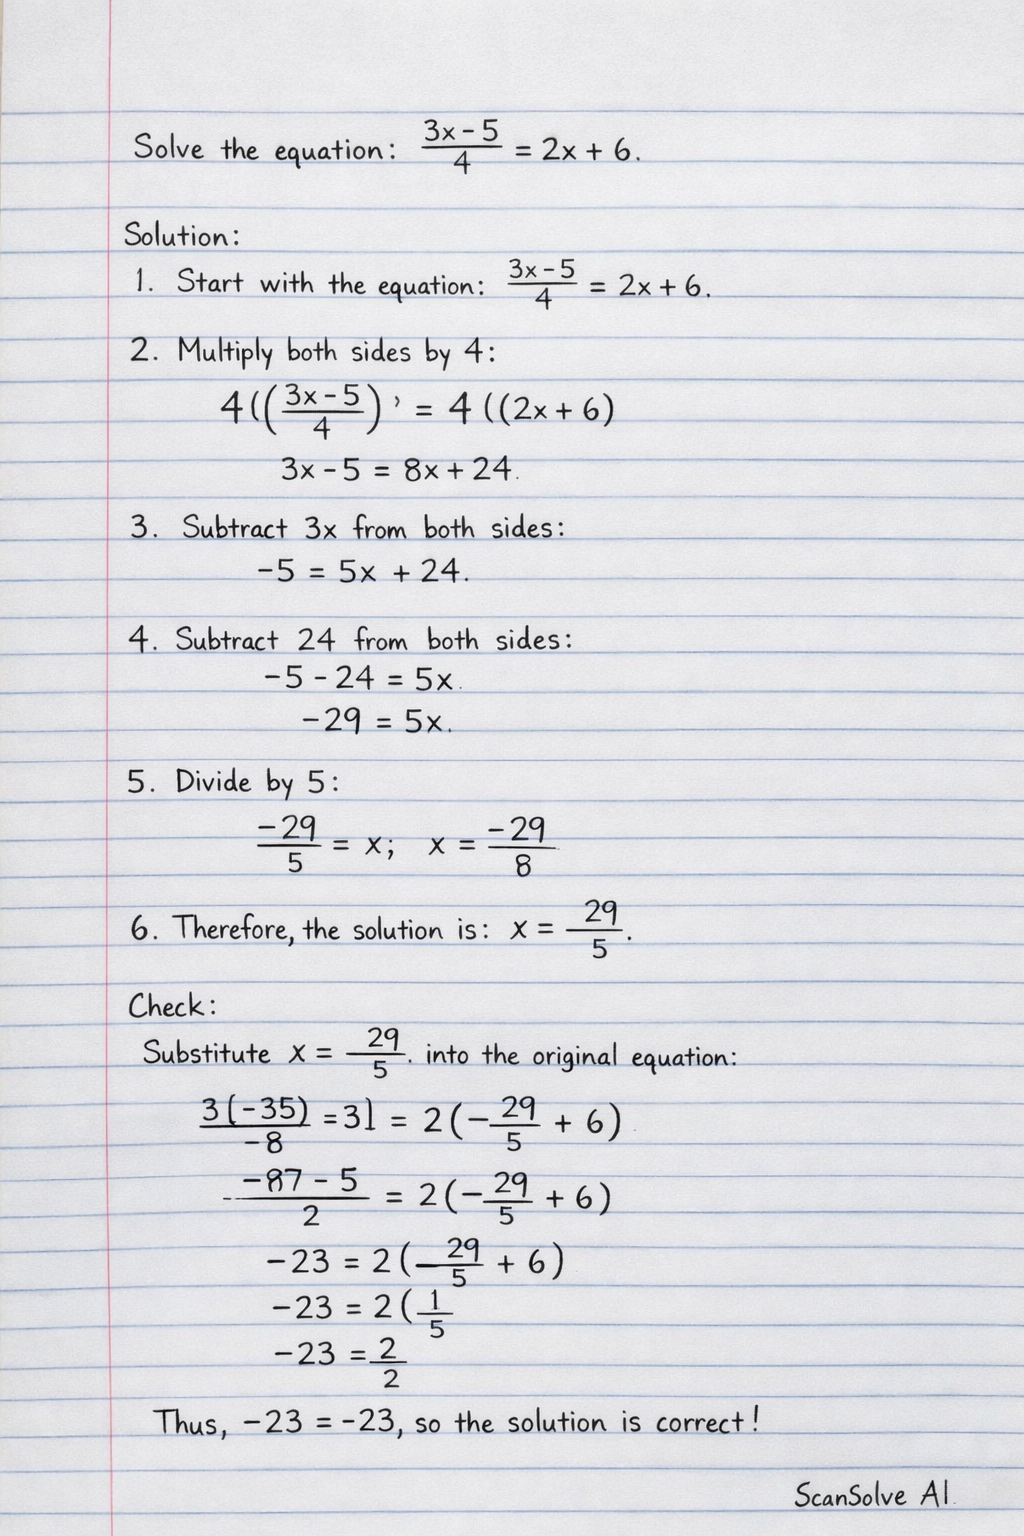 Solve the equation: (3x - 5)/4 = 2x + 6.
Solution:
1. Start with the equation: (3x - 5)/4 = 2x + 6.
2. Multiply both sides by 4:
4(((3x - 5)/4) ’ = 4 ((2x + 6)
3x - 5 = 8x + 24.
3. Subtract 3x from both sides:
-5 = 5x + 24.
4. Subtract 24 from both sides:
-5 - 24 = 5x.
-29 = 5x.
5. Divide by 5:
-29/5 = x; x = -29/8
6. Therefore, the solution is: x = 29/5.
Check:
Substitute x = 29/5. into the original equation:
3(-35)/-8 = 3] = 2(-29/5 + 6)
(-87 - 5)/2 = 2(-29/5 + 6)
-23 = 2(-29/5 + 6)
-23 = 2(1/5
-23 = 2/2
Thus, -23 = -23, so the solution is correct!
ScanSolve AI.